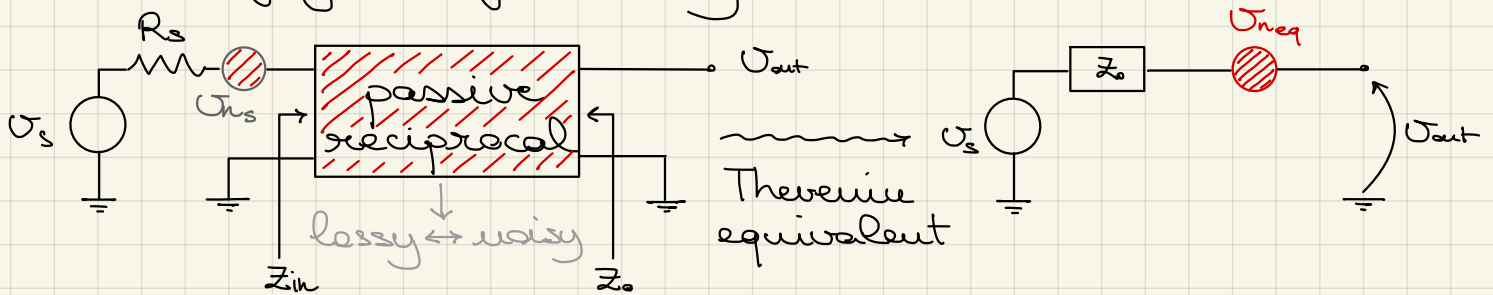 Rs
Vns
Vs
passive
reciprocal
lossy ↔ noisy
Zin
Zo
Vout
Thevenin
equivalent
Vs
Zo
Vneq
Vout